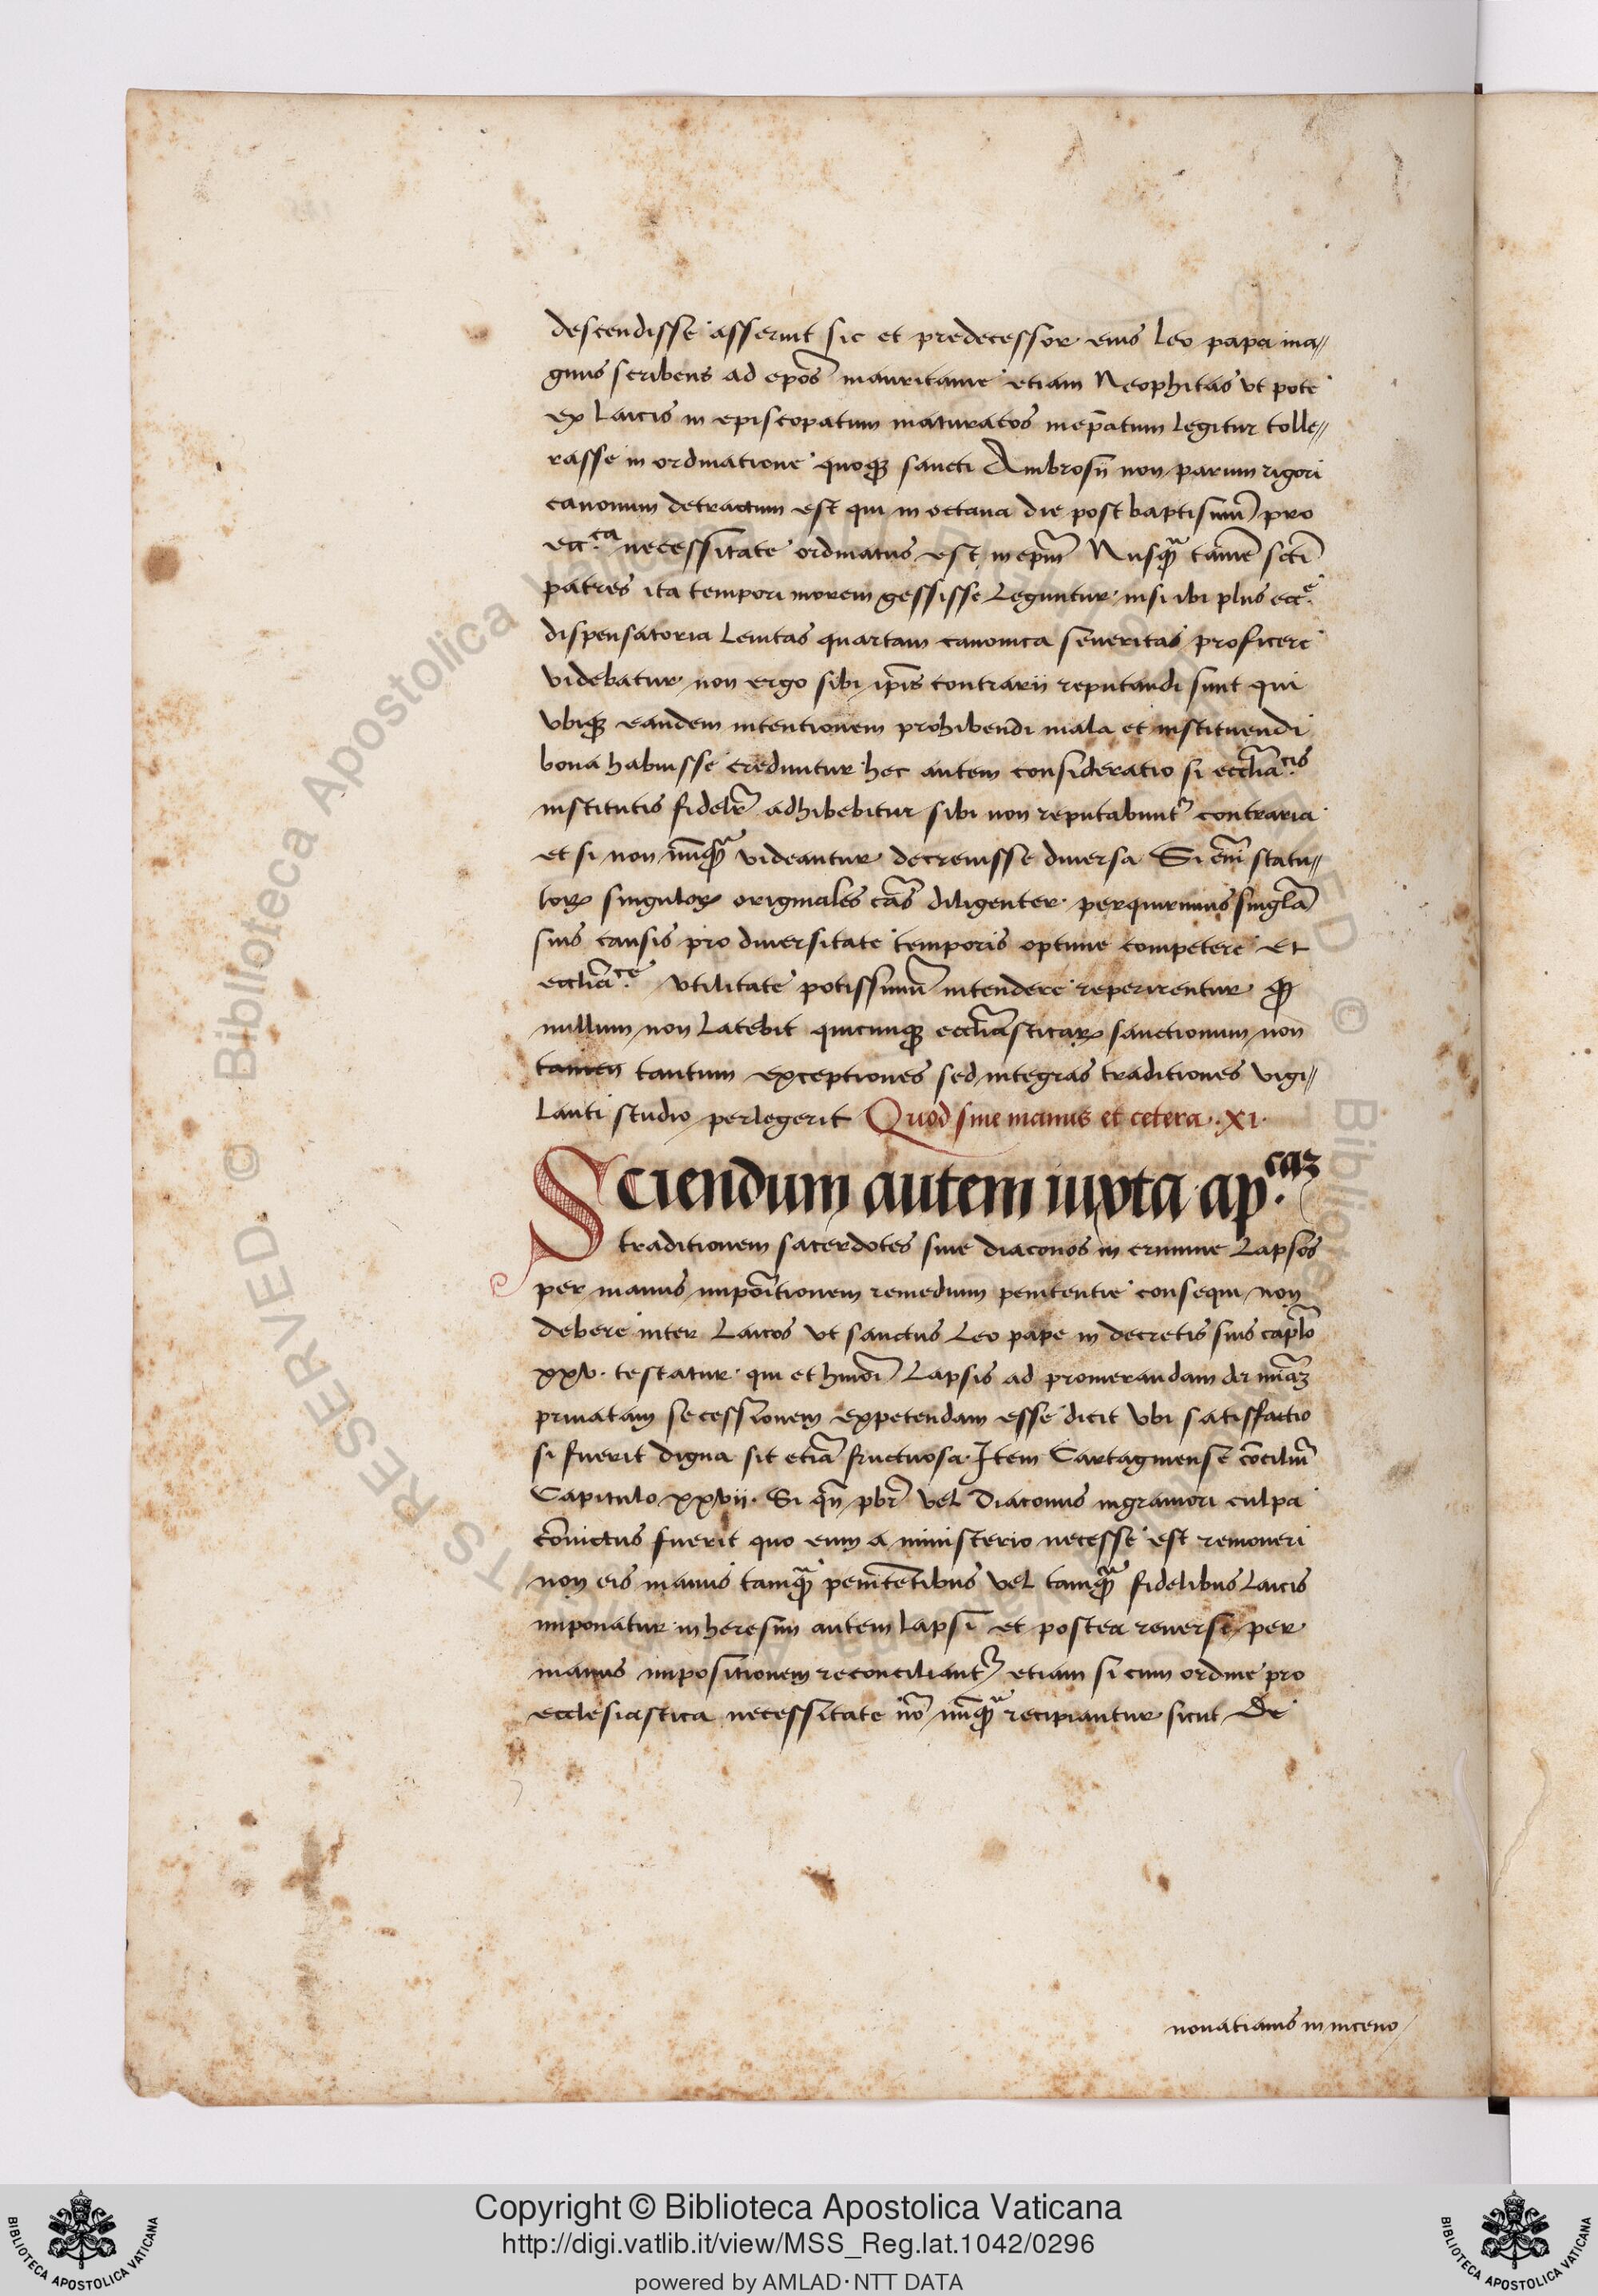 descendisse asserint sic et predecessor eius leo papa ma//
gnus scribens ad epos̄ mauritanie etiam Neophitas vt pote
ex laicis in episcopatum maturatos in ep̄atum legitur tolle//
rasse in ordinatione quoq̨ sancti Ambrosii non parum rigori
canonum detractum est qui in octaua die post baptismū pro
ecc.ca necessitate ordinatus est in epm̄ Nusq̨ª tamē scti̅
patres ita tempori morem gessisse leguntur nisi ibi plus ecc.e
dispensatoria lenitas quartam canonica seueritas proficere
videbatur non ergo sibi ip̄is contrarii reputandi sunt qui
vbiq̨ eandem intentionem prohibendi mala et instituendi
bona habuisse creduntur hec autem consideratio si ecclīa.cis
institutis fidelr̄ adhibebitur sibi non reputabunt̄ contraria
et si non nūq̨ª videantur decreuisse diuersa Si eni̅ statu//
torꝝ singulorꝝ originales cās diligenter perquirimus singlā
suis causis pro diuersitate temporis optime competere et
ecclīa.ce vtilitate potissimū intendere reperirentur
nullum non latebit quicunq̨ ecclīasticarꝝ sanctionum non
tamen tantum exceptiones sed integras traditiones vigi//
lanti studio perlegerit Quod sine manus et cetera .XI.
Sciendum autem iuxta ap.caz
traditionem sacerdotes siue diaconos in crimine lapsos
per manus impoītionem remedium penitentie consequi non
debere inter laicos vt sanctus leo pape in decretis suis cap̄lo
xxv. testatur qui et hmōi lapsis ad promerandam dei mīaz
priuatam secessionem expetendam esse dicit vbi satisfactio
si fuerit digna sit etiā fructuosa Item Cartaginense cōciliū
Capitulo xxvii. Si qn̄ pbr̄ vel Diaconus in grauiori culpa
cōuictus fuerit quo eum a ministerio necesse est remoueri
non eis manus tamq̨ª penitētibus vel tamq̨ª fidelibus laicis
imponatur in heresim autem lapsi et postea reuersi per
manus impositionem reconciliant̄ etiam si cum ordine pro
ecclesiastica necessitate nō nūq̨ª recipiantur sicut De
nouatianis in niceno
Copyright © Biblioteca Apostolica Vaticana
http://digi.vatlib.it/view/MSS_Reg.lat.1042/0296
powered by AMLAD·NTT DATA
BIBLIOTECA APOSTOLICA VATICANA
BIBLIOTECA APOSTOLICA VATICANA